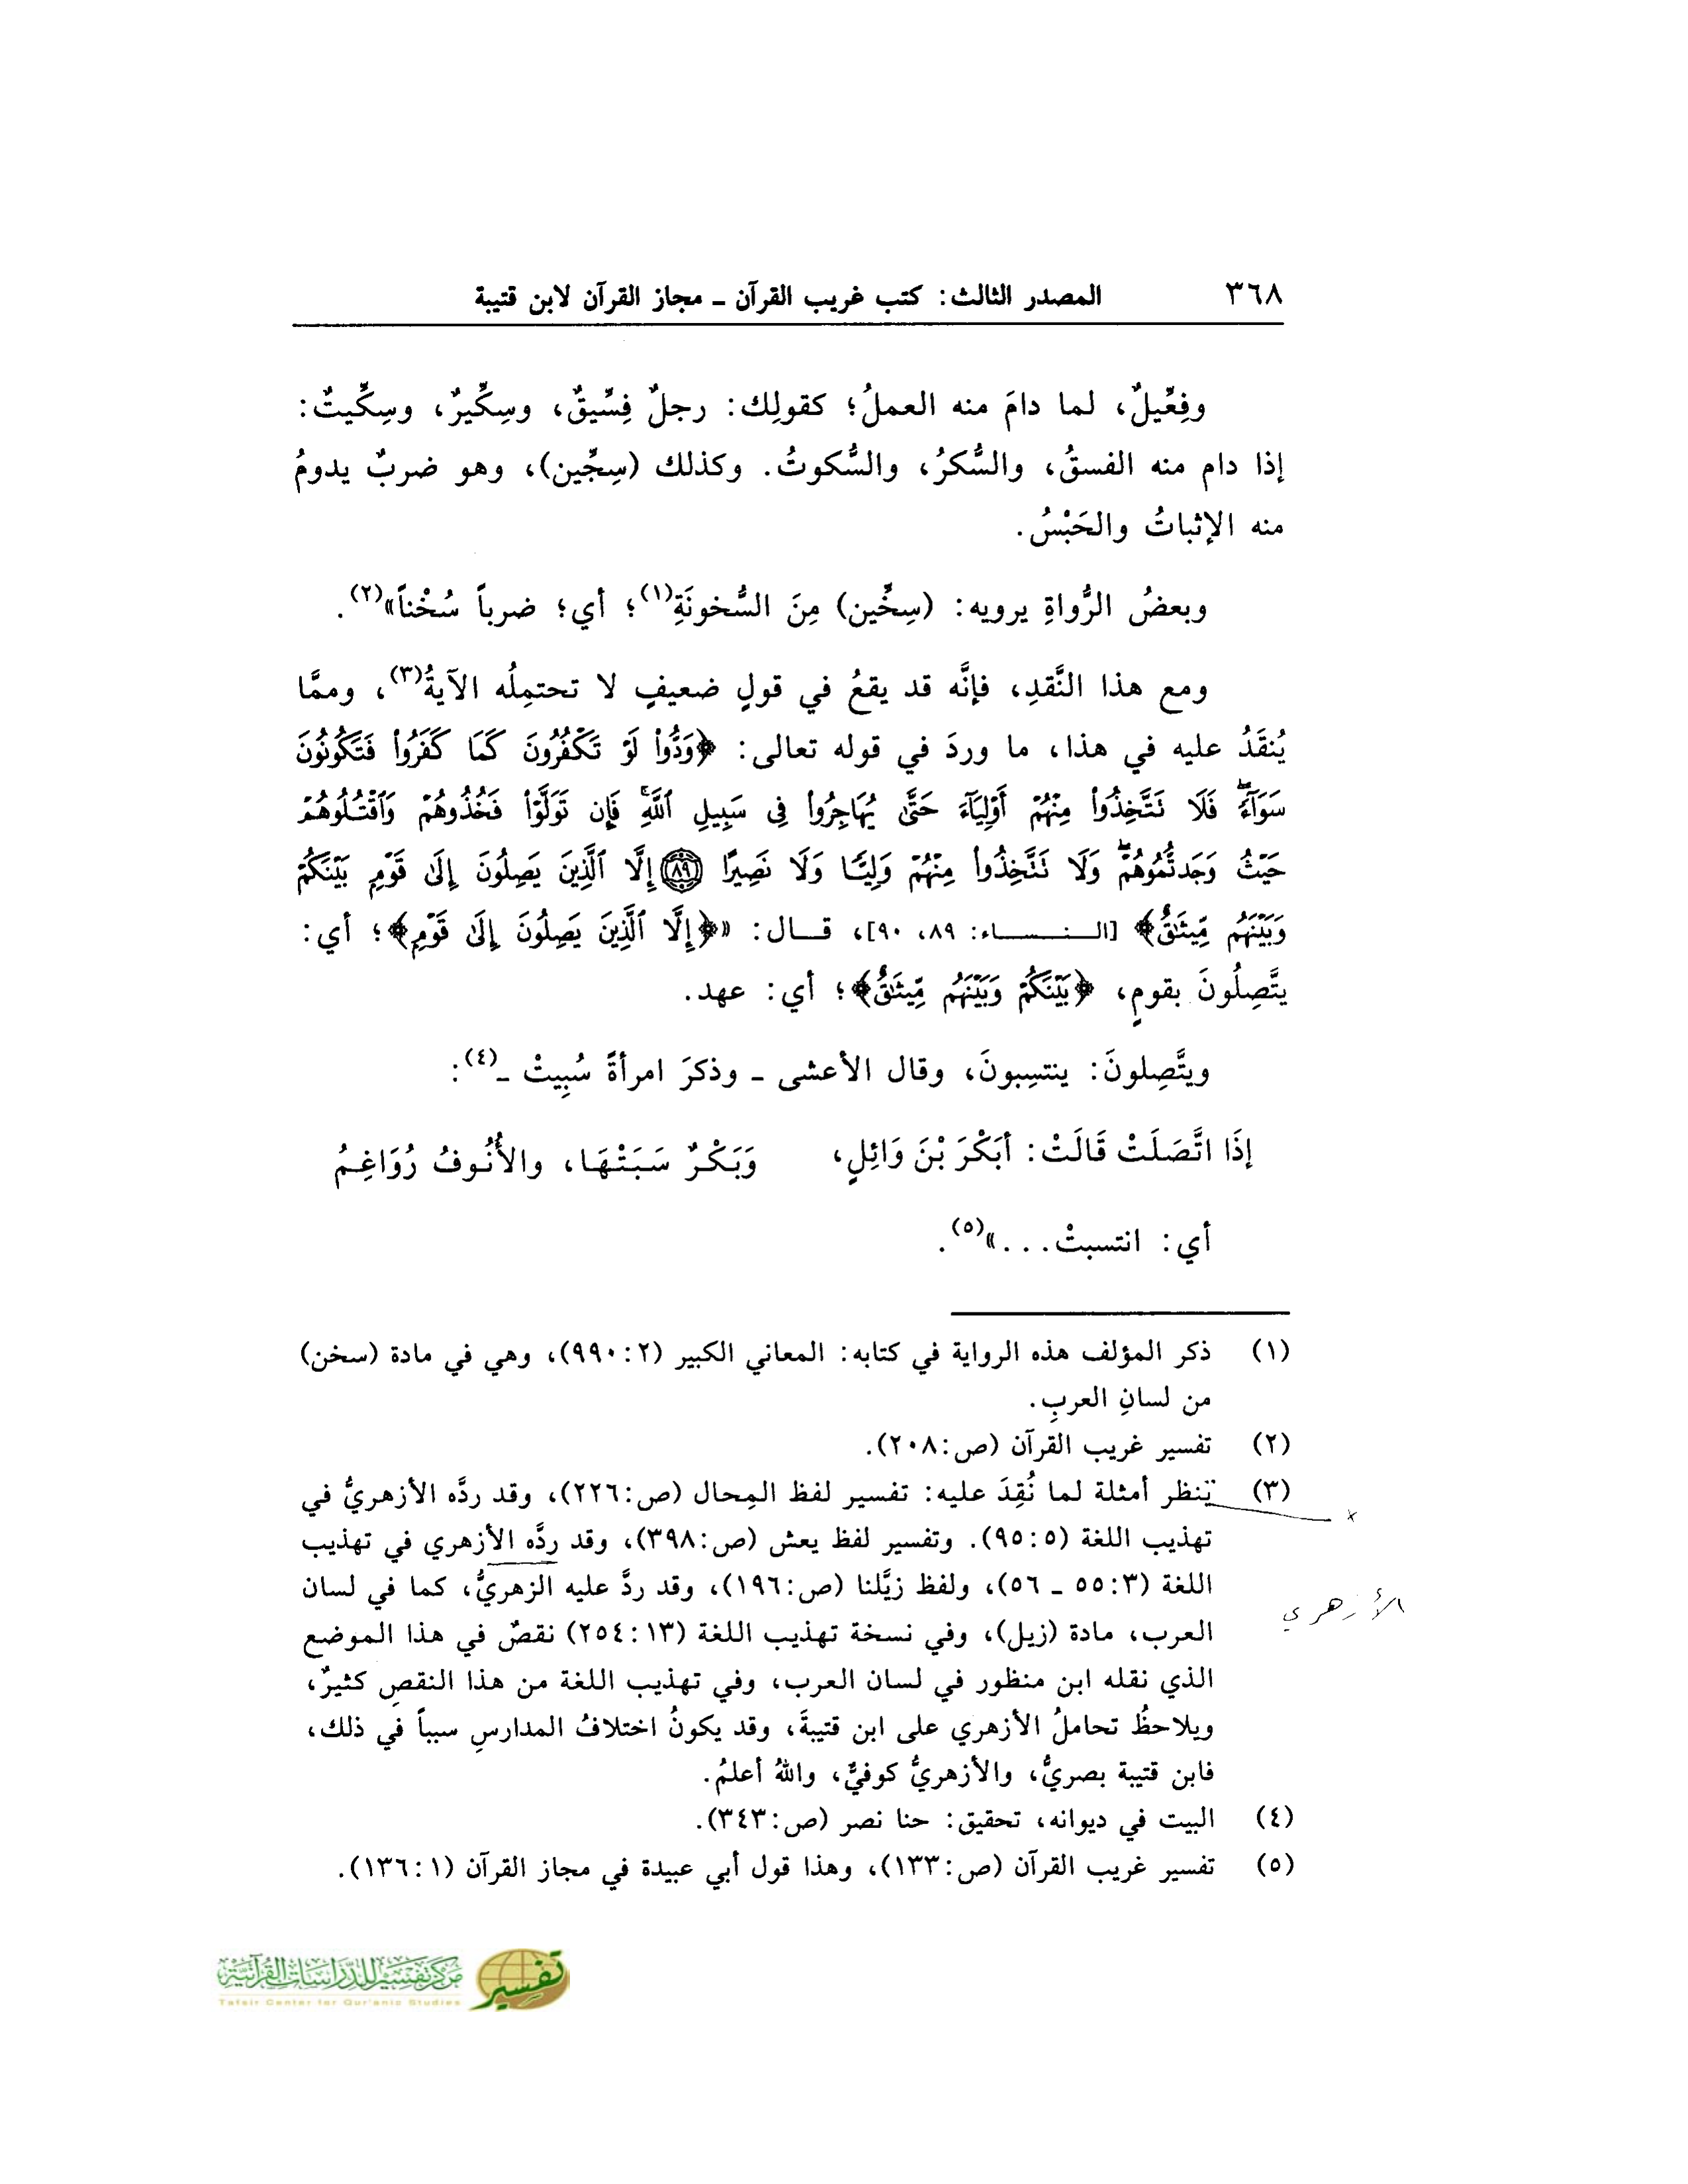 ٣٦٨ المصدر الثالث: كتب غريب القرآن ـ مجاز القرآن لابن قتيبة
وفِعِّيلٌ، لما دامَ منه العملُ؛ كقولِك: رجلٌ فِسِّيقٌ، وسِكِّيرٌ، وسِكِّيتٌ:
إذا دام منه الفسقُ، والسُّكرُ، والسُّكوتُ. وكذلك (سِجِّين)، وهو ضربٌ يدومُ
منه الإثباتُ والحَبْسُ.
وبعضُ الرُّواةِ يرويه: (سِخِّين) مِنَ السُّخونَةِ(١)؛ أي؛ ضرباً سُخْناً»(٢).
ومع هذا النَّقدِ، فإنَّه قد يقعُ في قولٍ ضعيفٍ لا تحتمِلُه الآيةُ(٣)، وممَّا
يُنقَدُ عليه في هذا، ما وردَ في قوله تعالى: ﴿وَدُّوا۟ لَوْ تَكْفُرُونَ كَمَا كَفَرُوا۟ فَتَكُونُونَ
سَوَآءًۖ فَلَا تَتَّخِذُوا۟ مِنْهُمْ أَوْلِيَآءَ حَتَّىٰ يُهَاجِرُوا۟ فِى سَبِيلِ ٱللَّهِۚ فَإِن تَوَلَّوْا۟ فَخُذُوهُمْ وَٱقْتُلُوهُمْ
حَيْثُ وَجَدتُّمُوهُمْۖ وَلَا تَتَّخِذُوا۟ مِنْهُمْ وَلِيًّا وَلَا نَصِيرًا ٨٩ إِلَّا ٱلَّذِينَ يَصِلُونَ إِلَىٰ قَوْمٍۭ بَيْنَكُمْ
وَبَيْنَهُم مِّيثَٰقٌ﴾ [النساء: ٨٩، ٩٠]، قال: «﴿إِلَّا ٱلَّذِينَ يَصِلُونَ إِلَىٰ قَوْمٍ﴾؛ أي:
يتَّصِلُونَ بقومٍ، ﴿بَيْنَكُمْ وَبَيْنَهُم مِّيثَٰقٌ﴾؛ أي: عهد.
ويتَّصِلونَ: ينتسِبونَ، وقال الأعشى ـ وذكرَ امرأةً سُبِيتْ ـ(٤):
إذَا اتَّصَلَتْ قَالَتْ: أبَكْرَ بْنَ وَائِلٍ، وَبَكْرٌ سَبَتْهَا، والأُنُوفُ رُوَاغِمُ
أي: انتسبتْ...»(٥).
(١) ذكر المؤلف هذه الرواية في كتابه: المعاني الكبير (٢:٩٩٠)، وهي في مادة (سخن)
من لسانِ العربِ.
(٢) تفسير غريب القرآن (ص:٢٠٨).
(٣) يُنظر أمثلة لما نُقِدَ عليه: تفسير لفظ المِحال (ص:٢٢٦)، وقد ردَّه الأزهريُّ في
تهذيب اللغة (٥:٩٥). وتفسير لفظ يعش (ص:٣٩٨)، وقد ردَّه الأزهري في تهذيب
اللغة (٣:٥٥ ـ ٥٦)، ولفظ زيَّلنا (ص:١٩٦)، وقد ردَّ عليه الزهريُّ، كما في لسان
الأزهري
العرب، مادة (زيل)، وفي نسخة تهذيب اللغة (١٣:٢٥٤) نقصٌ في هذا الموضع
الذي نقله ابن منظور في لسان العرب، وفي تهذيب اللغة من هذا النقصِ كثيرٌ،
ويلاحظُ تحاملُ الأزهري على ابن قتيبةَ، وقد يكونُ اختلافُ المدارسِ سبباً في ذلك،
فابن قتيبة بصريٌّ، والأزهريُّ كوفيٌّ، واللهُ أعلمُ.
(٤) البيت في ديوانه، تحقيق: حنا نصر (ص:٣٤٣).
(٥) تفسير غريب القرآن (ص:١٣٣)، وهذا قول أبي عبيدة في مجاز القرآن (١:١٣٦).
مركز تفسير للدراسات القرآنية
تفسير
Tafsir Center for Qur'anic Studies